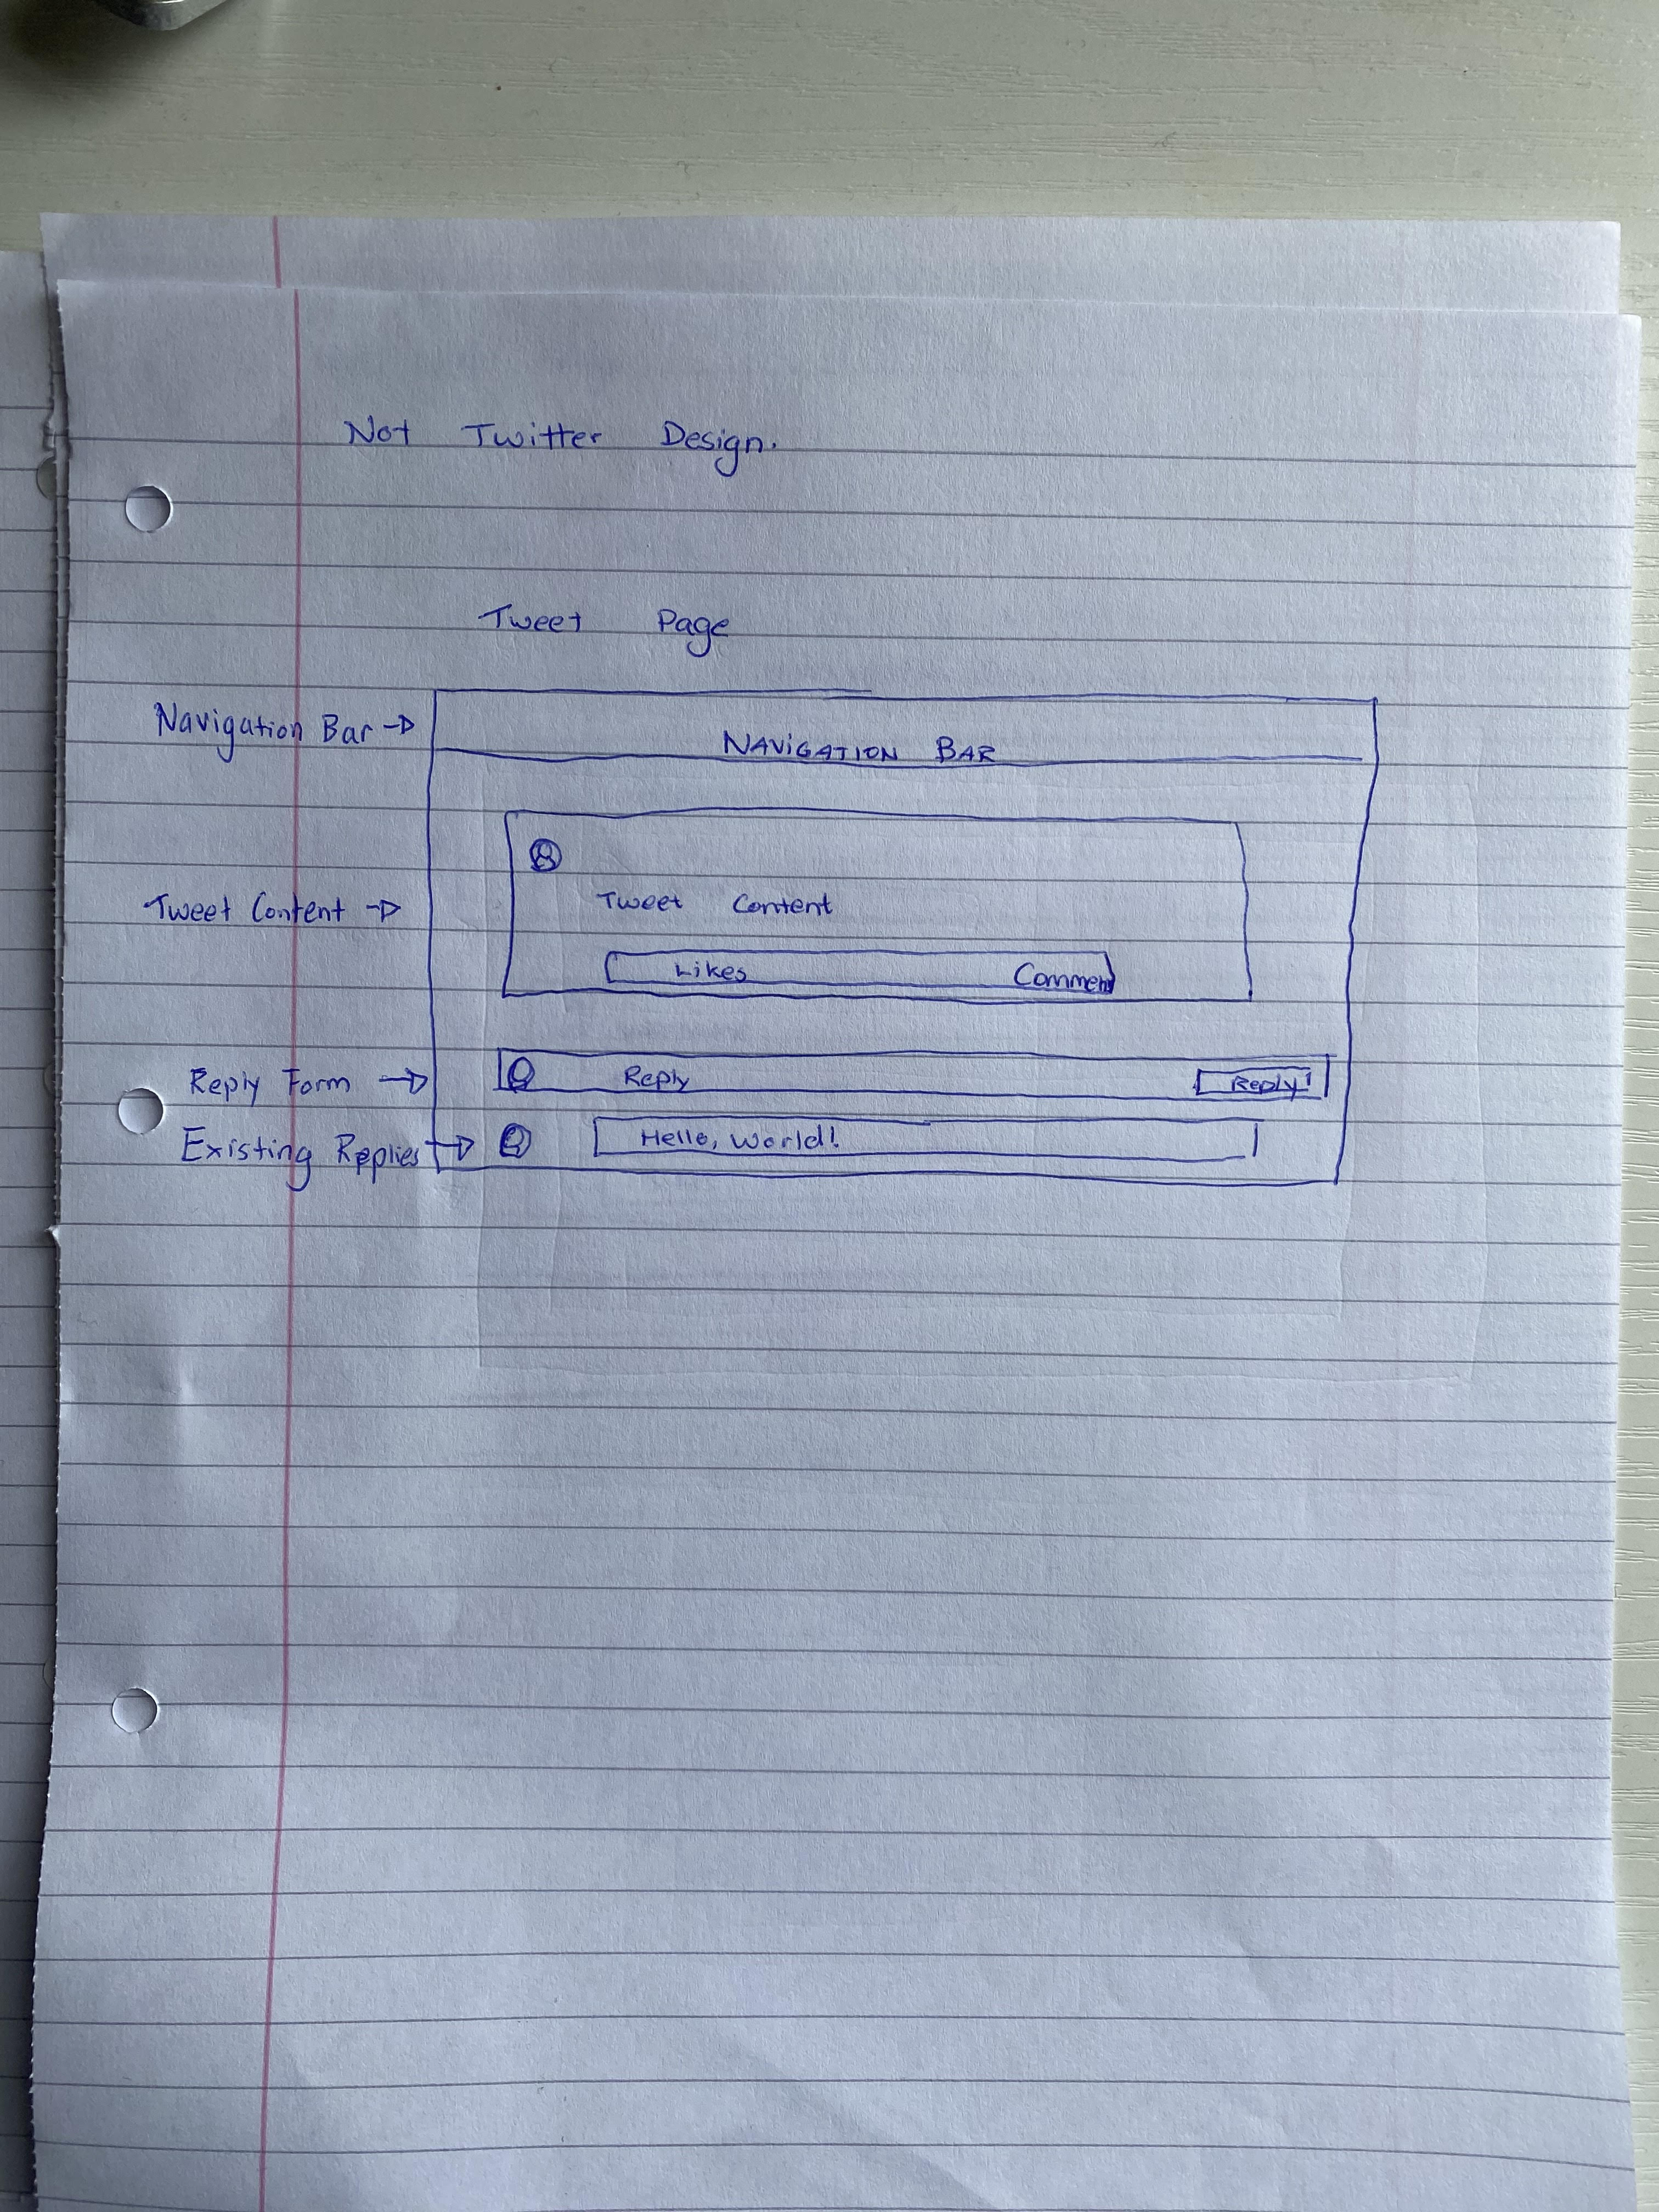 Not Twitter Design.
Tweet Page
Navigation Bar →
NAVIGATION BAR
Tweet Content →
Tweet Content
Likes Commen
Reply Form →
Reply Reply!
Existing Replies →
Hello, World!